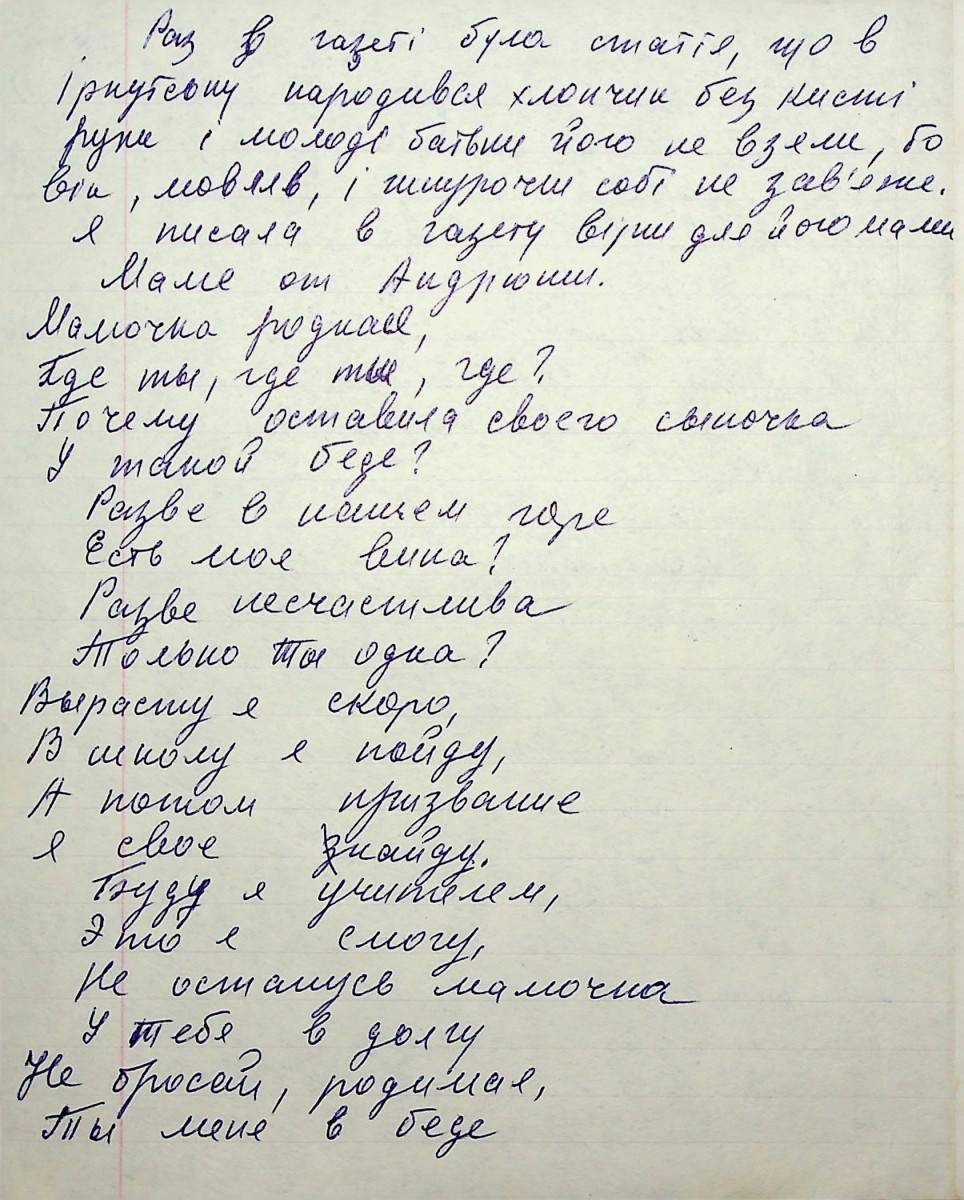 Раз в газеті була стаття, що в
Іркутську народився хлопчик без кисті
руки і молоді батьки його не взяли, бо
він, мовляв, і шнурочки собі не зав'яже.
Я писала в газету вірш для його мами
Маме от Андрюши.
Мамочка родная,
Где ты, где ты, где?
Почему оставила своего сыночка
У такой беде?
Разве в нашем горе
Есть моя вина?
Разве несчастлива
Только ты одна?
Вырасту я скоро,
В школу я пойду,
А потом призвание
Я свое найду.
Буду я учителем,
Это я смогу,
Не останусь мамочка
У тебя в долгу
Не бросай, родимая,
Ты меня в беде